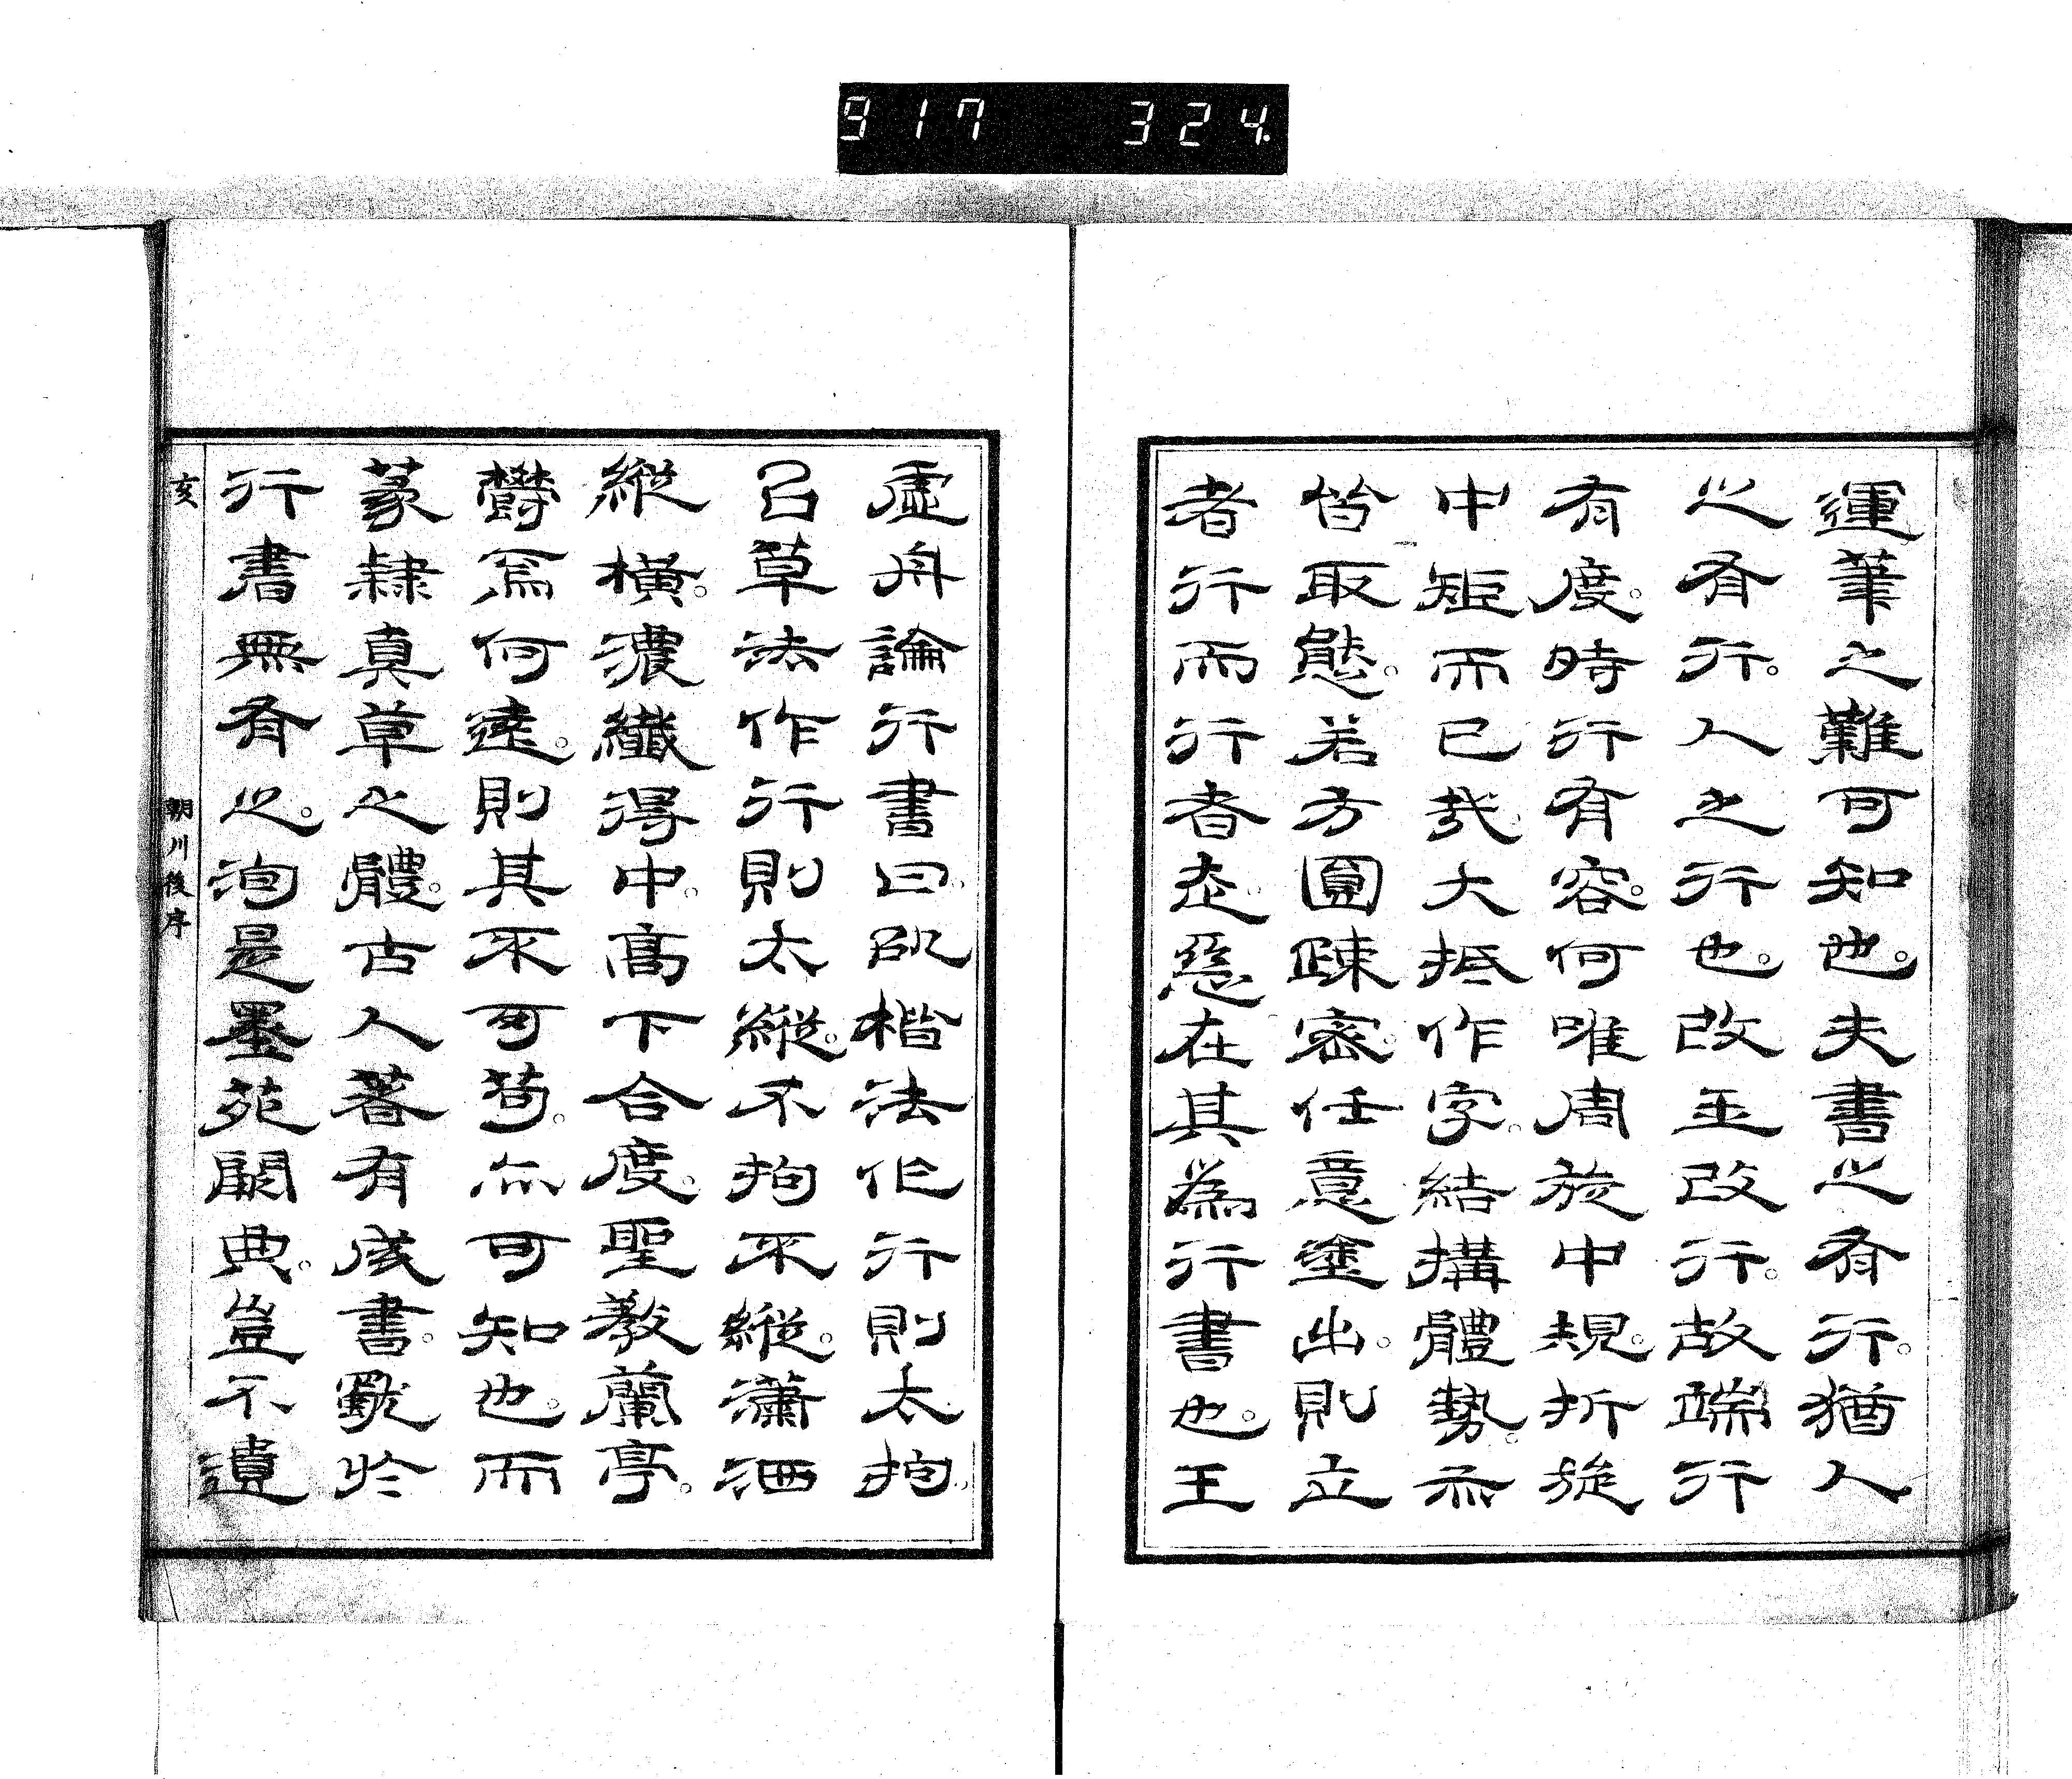 917 324
運筆之難可知也。夫書之有行。猶人
之有行。人之行也。改玉改行。故端行
有度。時行有容。何唯周旋中規。折旋
中矩而已哉。大抵作字。結搆體勢。亦
皆取態。若方圓疎密。任意塗出。則立
者行而行者走。惡在其為行書也。王
虛舟論行書曰。㕥楷法作行則太拘。
㠯草法作行則太縱。不拘不縱。瀟洒
縱橫。濃纖得中。高下合度。聖教蘭亭。
欝焉何遠。則其不可苟。亦可知也。而
篆隸真草之體。古人著有成書。獨於
行書無有之。洵是墨苑闕典。豈不遺
亥
朝川後序